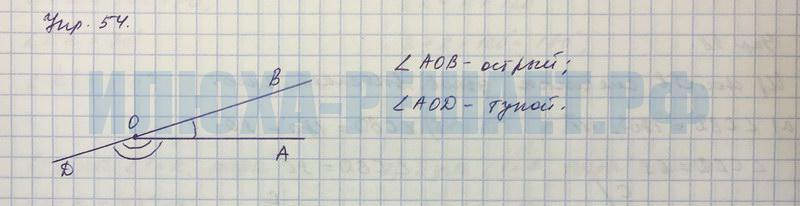 Упр. 54.
∠AOB - острый;
∠AOD - тупой.
B
O
A
D
ИЛЮХА-РЕШАЕТ.РФ